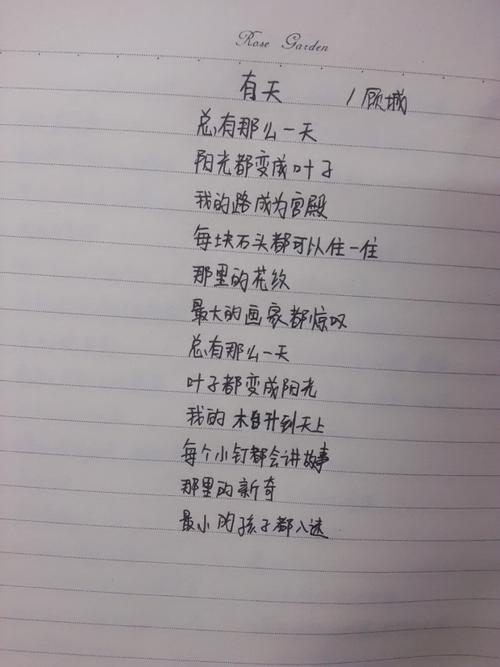 Rose Garden
有天 / 顾城
总有那么一天
阳光都变成叶子
我的路成为宫殿
每块石头都可以住一住
那里的花纹
最大的画家都惊叹
总有那么一天
叶子都变成阳光
我的木白升到天上
每个小钉都会讲故事
那里的新奇
最小的孩子都入迷